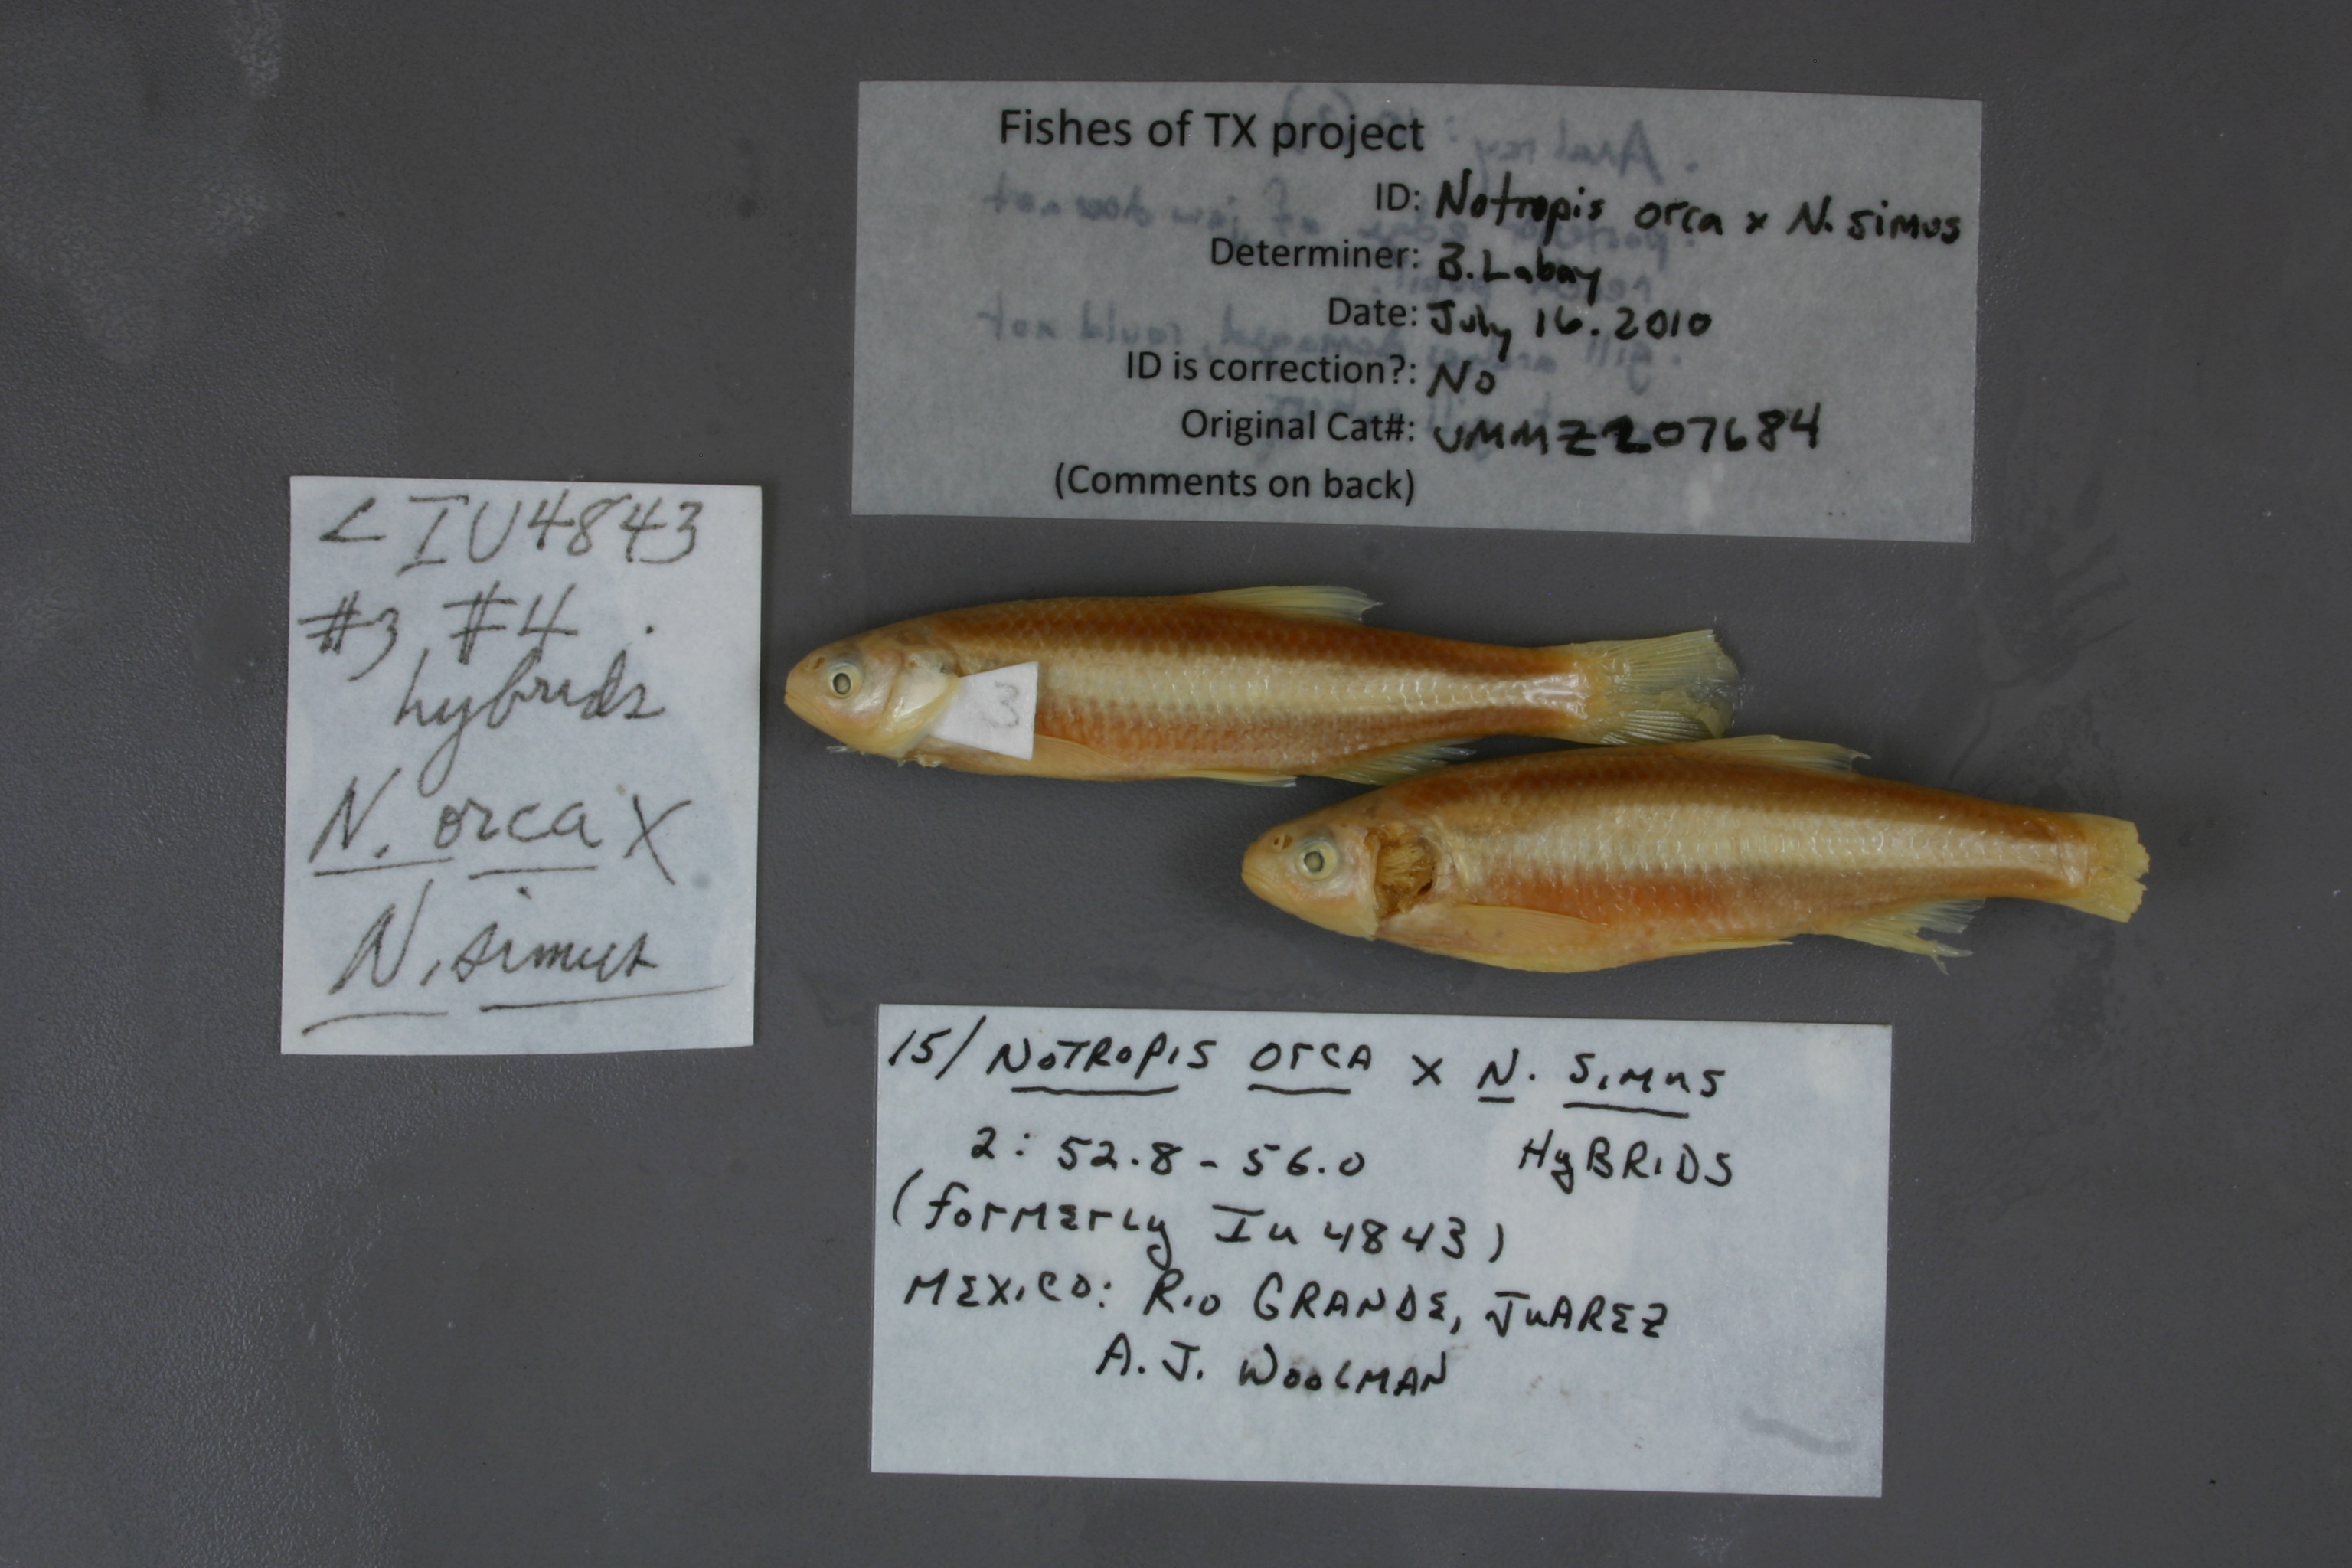 Fishes of TX project
ID: Notropis orca x N. simus
Determiner: B. Labay
Date: July 16. 2010
ID is correction?: No
Original Cat#: UMMZ 207684
(Comments on back)
< IU4843
#3, #4
hybrids
N. orca X
N. simus
3
15/ NOTROPIS ORCA x N. SIMUS
2: 52.8 - 56.0 HyBRIDS
(formerly Iu 4843)
MEXICO: RIO GRANDE, JuAREZ
A. J. WOOLMAN